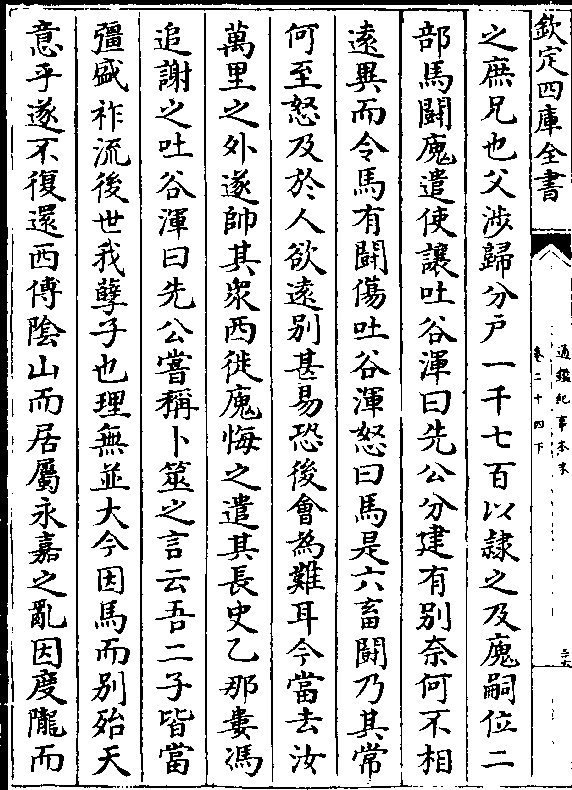 欽定四庫全書
通鑑紀事本末
卷二十四下
之庶兄也父涉歸分戶一千七百以隸之及廆嗣位二
部馬鬭廆遣使讓吐谷渾曰先公分建有別奈何不相
遠異而令馬有鬭傷吐谷渾怒曰馬是六畜鬭乃其常
何至怒及於人欲遠別甚易恐後會為難耳今當去汝
萬里之外遂帥其衆西徙廆悔之遣其長史乙那婁馮
追謝之吐谷渾曰先公嘗稱卜筮之言云吾二子皆當
彊盛祚流後世我孽子也理無並大今因馬而別殆天
意乎遂不復還西傅陰山而居屬永嘉之亂因度隴而